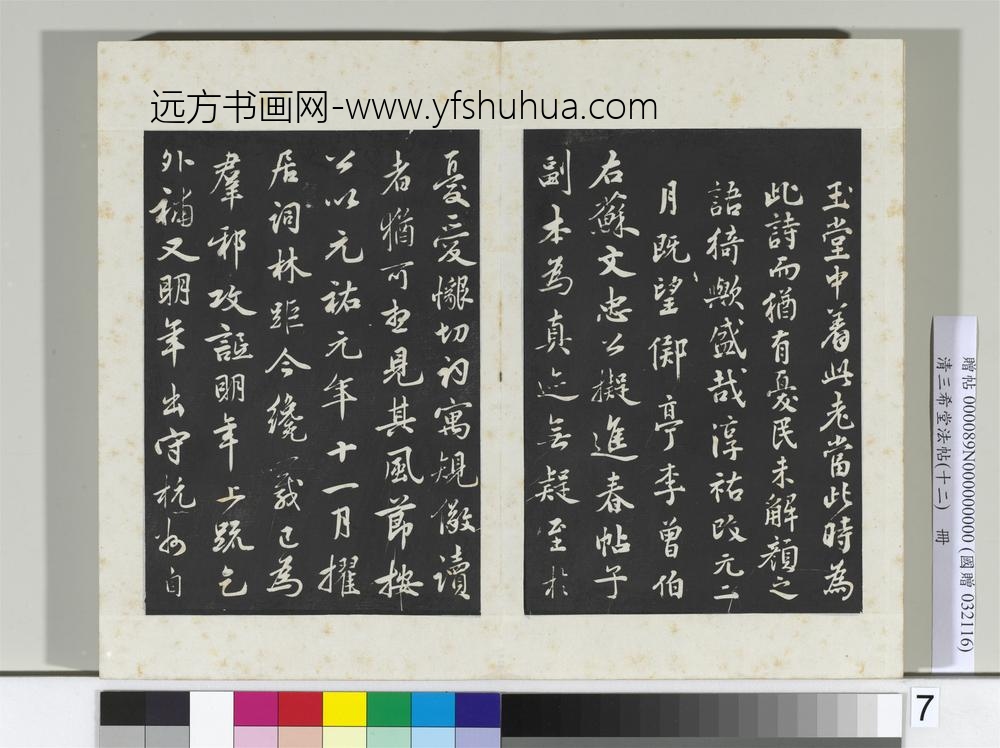 远方书画网-www.yfshuhua.com
玉堂中着此老當此時為
此詩而猶有憂民未解顏之
語猗歟盛哉淳祐改元二
月既望鄊亭李曾伯
右蘇文忠公擬進春帖子
副本為真迹無疑至於
憂愛懇切詞寓規儆讀
者猶可想見其風節按
公以元祐元年十一月擢
居詞林距今纔一歲已為
羣邪攻詆明年上疏乞
外補又明年出守杭州自
贈帖 000089N000000000 (國贈 032116)
清三希堂法帖(十二) 冊
7